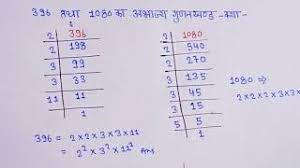 396 तथा 1080 का अभाज्य गुणनखण्ड क्या-
2 | 396
2 | 198
3 | 99
3 | 33
11 | 11
1
396 = 2×2×3×3×11
2² × 3² × 11² Ans
2 | 1080
2 | 540
2 | 270
3 | 135
3 | 45
3 | 15
5 | 5
1
1080 ⇒
2×2×2×3×